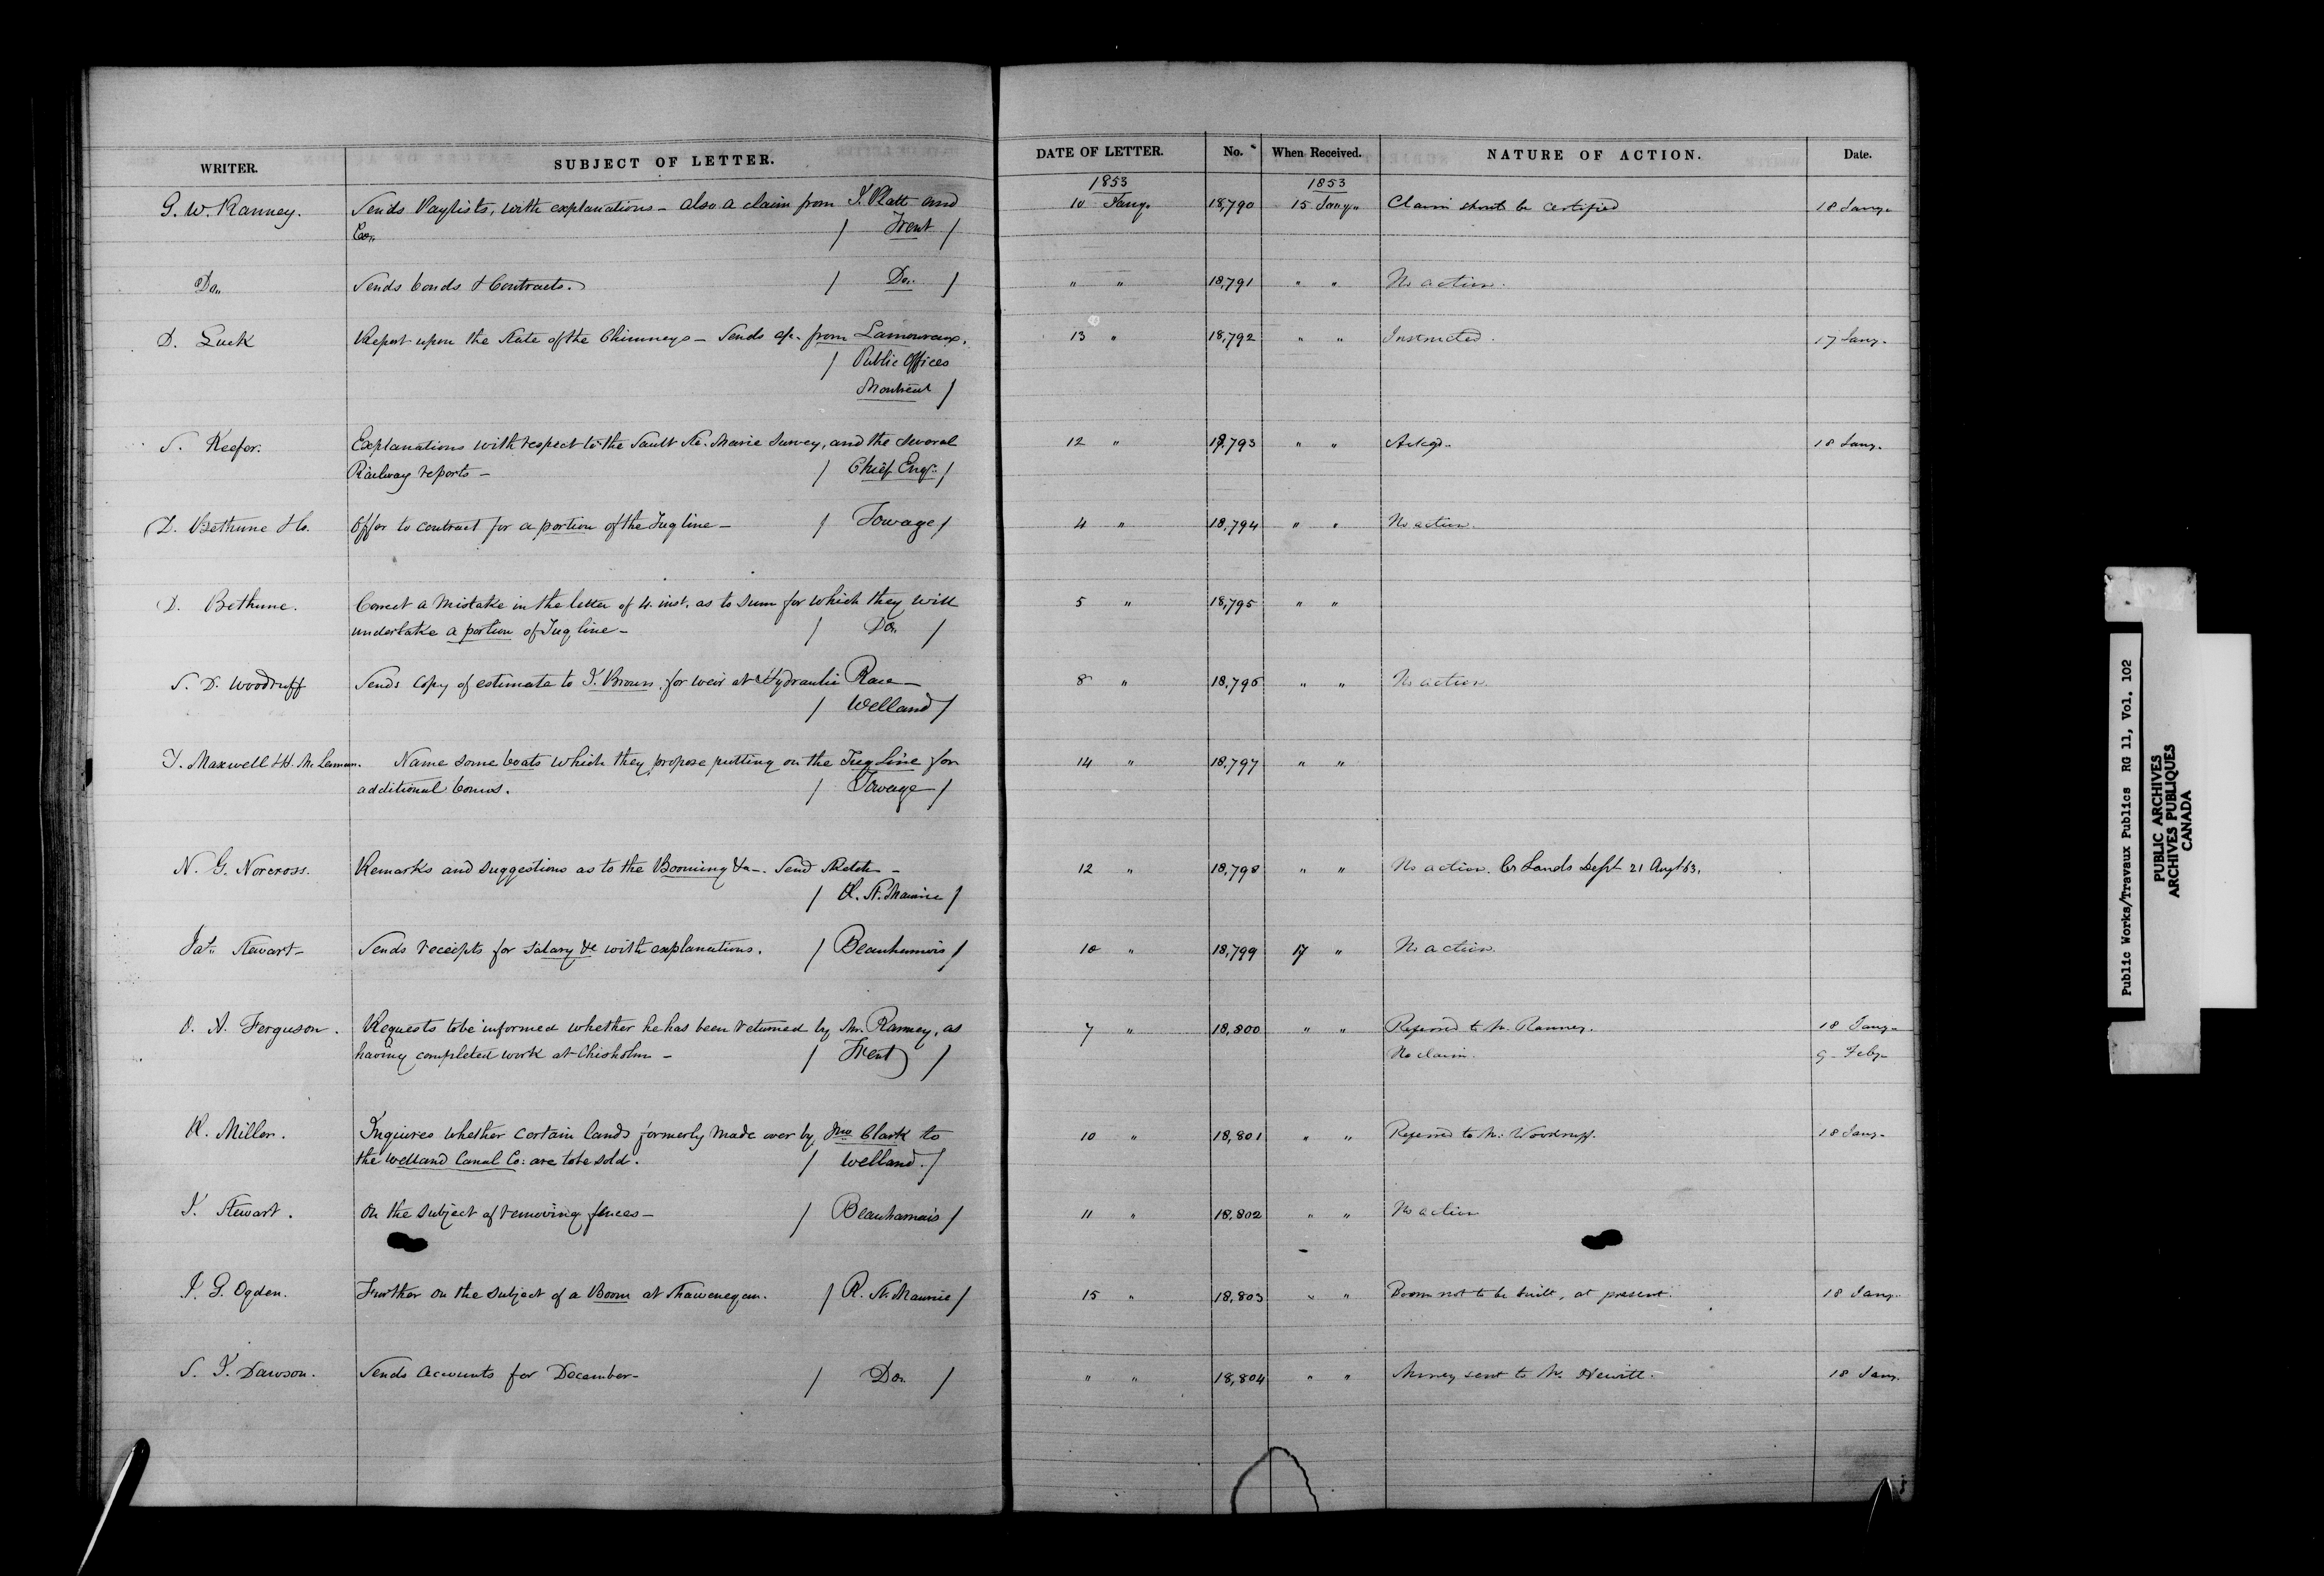 WRITER. SUBJECT OF LETTER. DATE OF LETTER. No. When Received. NATURE OF ACTION. Date.
1853 1853
G. W. Ranney. Sends Paylists, with explanations – also a claim from J. Platt and 10 Jany. 18,790 15 Jany. Claim should be certified 18 Jany.
Co. / Trent /
Do. Sends bonds & Contracts. / Do. / " " 18,791 " " No action.
D. Luck Report upon the State of the Chimneys – Sends a/c. from Lamoureux. 13 " 18,792 " " Instructed. 17 Jany.
/ Public Offices
Montreal /
S. Keefer. Explanations with respect to the Sault Ste. Marie Survey, and the several 12 " 18,793 " " Ackgd. 18 Jany.
Railway reports – / Chief Engr. /
D. Bethune & Co. Offer to contract for a portion of the Tug line – / Towage / 4 " 18,794 " " No action.
D. Bethune. Correct a mistake in the letter of 4 inst. as to sum for which they will 5 " 18,795 " "
undertake a portion of Tug line – / Do. /
S. D. Woodruff Sends copy of estimate to J. Brown for weir at Hydraulic Race – 8 " 18,796 " " No action.
/ Welland /
J. Maxwell & H. McLennan. Name some boats which they propose putting on the Tug Line for 14 " 18,797 " "
additional bonus. / Towage /
N. G. Norcross. Remarks and suggestions as to the Booming &a –. Send Sketch – 12 " 18,798 " " No action. Cr Lands Dept 21 Augt 63.
/ R. St. Maurice /
Jas. Stewart – Sends receipts for salary &c with explanations. / Beauharnois / 10 " 18,799 17 " No action.
O. A. Ferguson. Requests to be informed whether he has been returned by Mr. Ranney, as 7 " 18,800 " " Referred to Mr. Ranney. 18 Jany.
having completed work at Chisholm – / Trent / No claim. 9 – Feby.
R. Miller. Inquires whether certain lands formerly made over by Jno Clark to 10 " 18,801 " " Referred to Mr. Woodruff. 18 Jany.
the Welland Canal Co: are to be sold. / Welland. /
J. Stewart. On the subject of removing fences – / Beauharnais / 11 " 18,802 " " No action
I. G. Ogden. Further on the subject of a Boom at Shawenegan. / R. St. Maurice / 15 " 18,803 " " Boom not to be built, at present. 18 Jany.
S. J. Dawson. Sends accounts for December – / Do. / " " 18,804 " " Money sent to Mr. Hewitt. 18 Jany.
Public Works/Travaux Publics RG 11, Vol. 102
PUBLIC ARCHIVES
ARCHIVES PUBLIQUES
CANADA